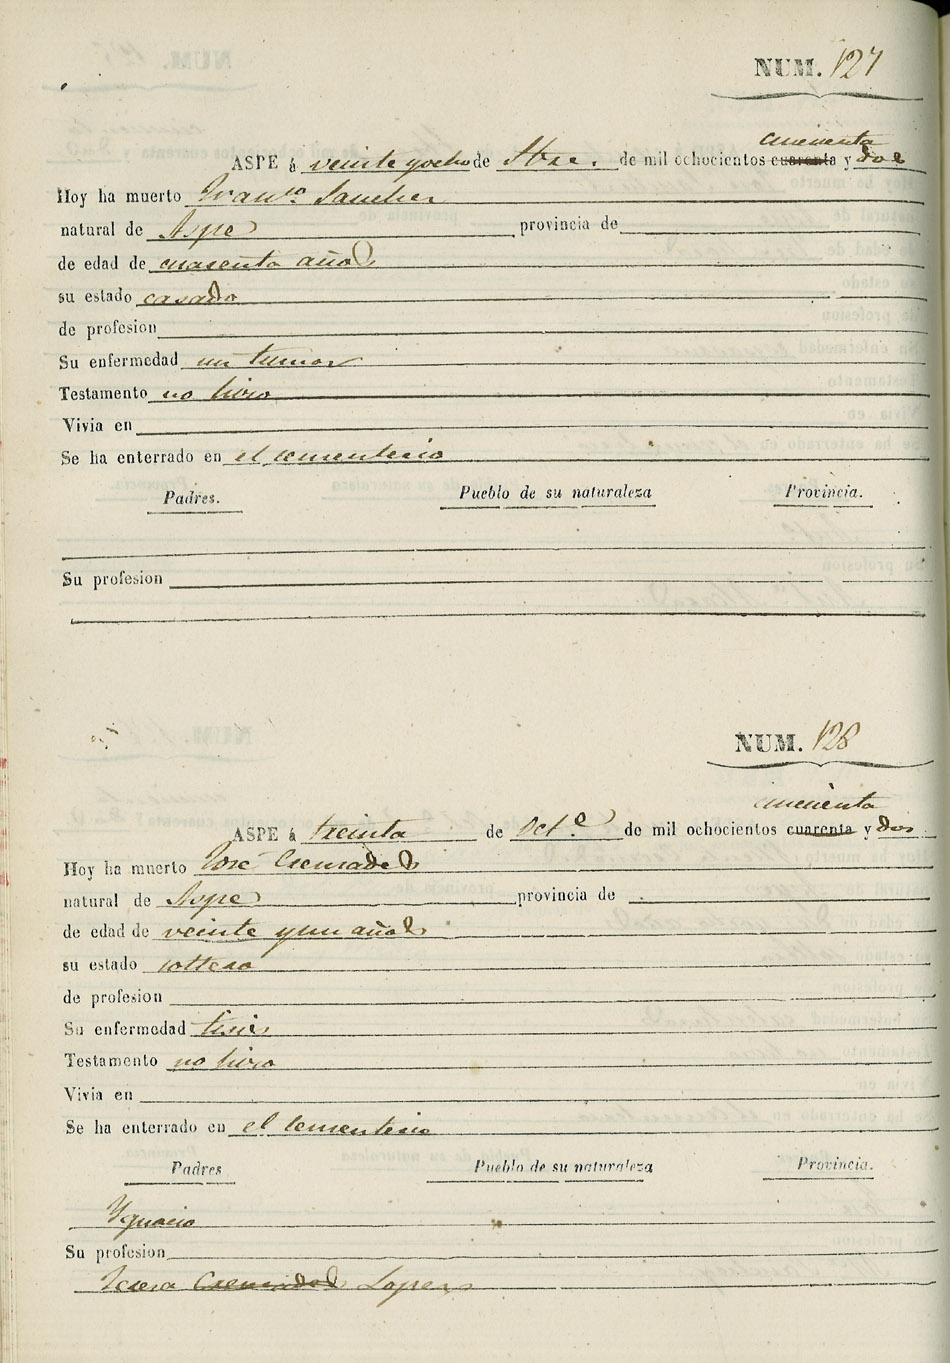 NUM. 127
cincuenta
ASPE á veinte y ocho de 8bre. de mil ochocientos cuarenta y dos
Hoy ha muerto Franco Sanchez
natural de Aspe provincia de
de edad de cuarenta años
su estado casado
de profesion
Su enfermedad un tumor
Testamento no hizo
Vivia en
Se ha enterrado en el cementerio
Padres. Pueblo de su naturaleza Provincia.
Su profesion
NUM. 128
cincuenta
ASPE á treinta de Oct.e de mil ochocientos cuarenta y dos
Hoy ha muerto José Cremades
natural de Aspe provincia de
de edad de veinte y un años
su estado soltero
de profesion
Su enfermedad tisis
Testamento no hizo
Vivia en
Se ha enterrado en el cementerio
Padres Pueblo de su naturaleza Provincia.
Ygnacio
Su profesion
Teresa Cremades Lopez